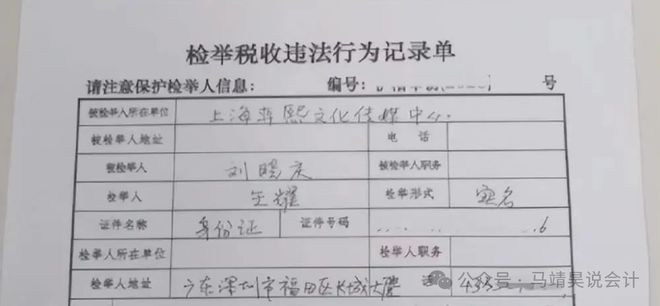 检举税收违法行为记录单
请注意保护检举人信息： 编号： 号
被检举人所在单位 上海 熙文化传媒中心.
被检举人地址 电 话
被检举人 刘晓庆 被检举人职务
检举人 王耀 检举形式 实名
证件名称 身份证 证件号码 6
检举人所在单位 检举人职务
检举人地址 广东深圳市福田区长城大厦
公众号·马靖昊说会计